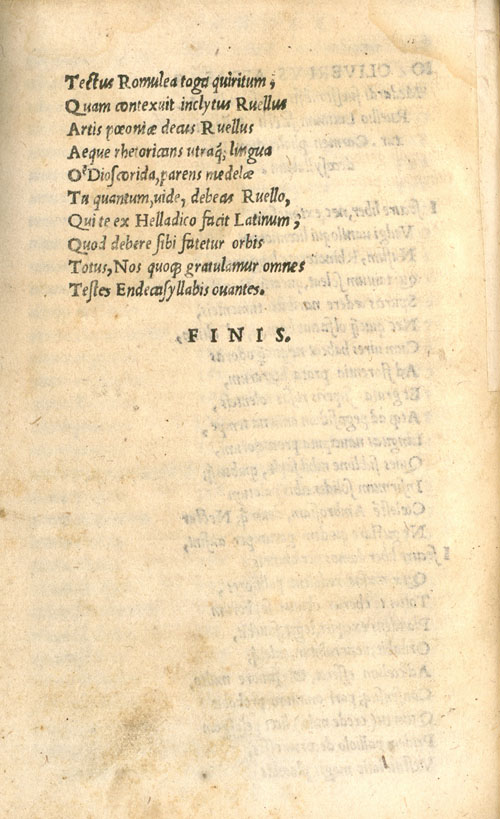 Tectus Romulea toga quiritum;
Quam contexuit inclytus Ruellus
Artis pœoniæ decus Ruellus
Aeque rhetoricans utraq; lingua
O Dioscorida, parens medelæ
Tu quantum, uide, debeas Ruello,
Qui te ex Helladico facit Latinum;
Quod debere sibi fatetur orbis
Totus, Nos quoq; gratulamur omnes
Testes Endecasyllabis ouantes.
FINIS.